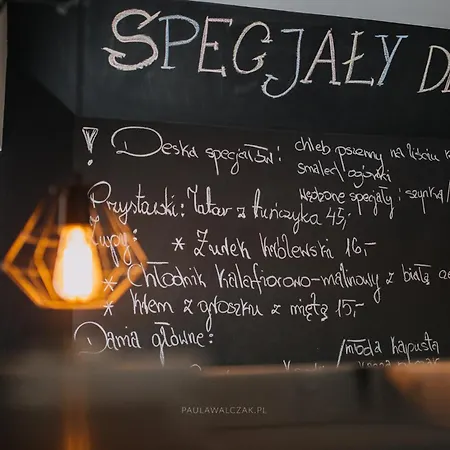 SPECJAŁY
! Deska specjałów: chleb pszenny na liściu
smalec, ogórki
wędzone specjały: szynka/
Przystawki: Tatar z tuńczyka 45,-
Zupy: * Żurek królewski 16,-
* Chłodnik kalafiorowo-malinowy z białą
* krem z groszku z miętą 15,-
Dania główne:
/młoda kapusta
PAULAWALCZAK.PL